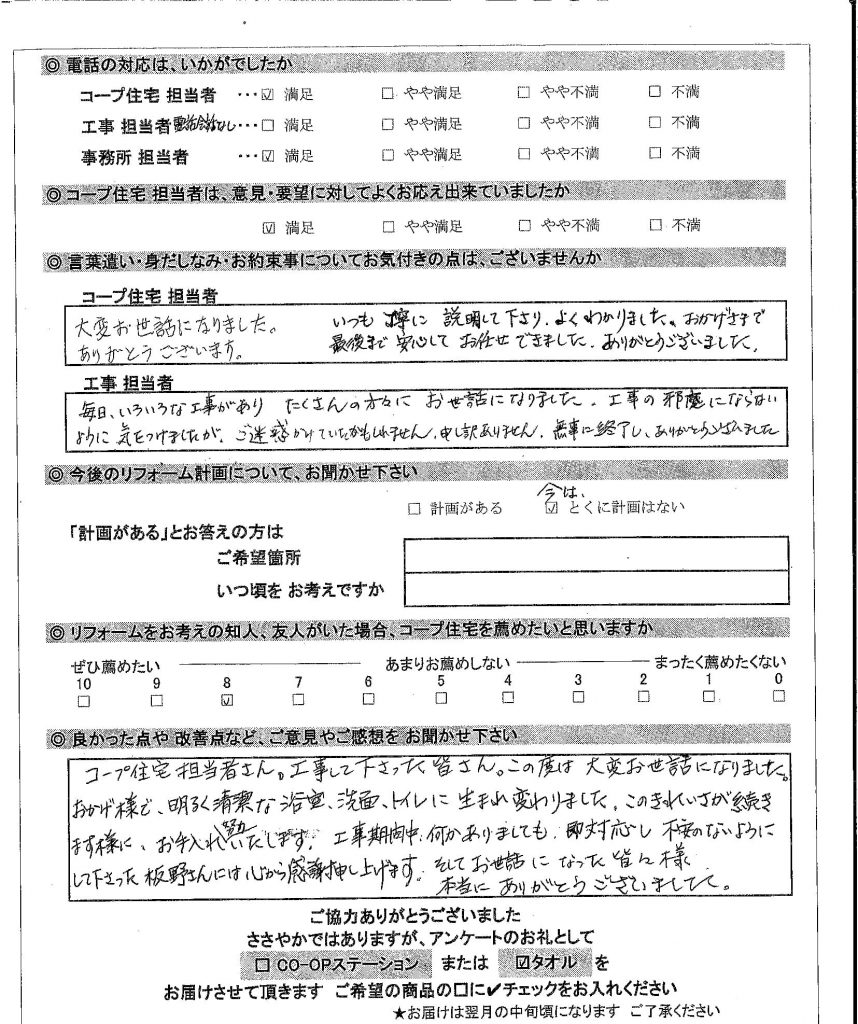 ◎ 電話の対応は、いかがでしたか
コープ住宅 担当者 …☑ 満足 □ やや満足 □ やや不満 □ 不満
工事 担当者 電話会話なし …□ 満足 □ やや満足 □ やや不満 □ 不満
事務所 担当者 …☑ 満足 □ やや満足 □ やや不満 □ 不満
◎ コープ住宅 担当者は、意見・要望に対してよくお応え出来ていましたか
☑ 満足 □ やや満足 □ やや不満 □ 不満
◎ 言葉遣い・身だしなみ・お約束事についてお気付きの点は、ございませんか
コープ住宅 担当者
大変お世話になりました。
ありがとうございます。
いつも丁寧に 説明して下さり、よくわかりました。おかげさまで
最後まで 安心して お任せできました。ありがとうございました。
工事 担当者
毎日、いろいろな工事があり たくさんの方々に お世話になりました。工事の邪魔にならない
ように 気をつけましたが、ご迷惑かけていたかもしれません。申し訳ありません。無事に終了し、ありがとうございました
◎ 今後のリフォーム計画について、お聞かせ下さい
今は、
□ 計画がある ☑ とくに計画はない
「計画がある」とお答えの方は
ご希望箇所
いつ頃を お考えですか
◎ リフォームをお考えの知人、友人がいた場合、コープ住宅を薦めたいと思いますか
ぜひ薦めたい あまりお薦めしない まったく薦めたくない
10 9 8 7 6 5 4 3 2 1 0
□ □ ☑ □ □ □ □ □ □ □ □
◎ 良かった点や 改善点など、ご意見やご感想を お聞かせ下さい
コープ住宅 担当者さん。工事して下さった 皆さん。この度は 大変お世話になりました。
おかげ様で、明るく清潔な 浴室、洗面、トイレに 生まれ変わりました。このきれいさが続き
ます様に、お手入れいたします。工事期間中、何かありましても、即対応し 不安のないように
して下さった 板野さんには 心から感謝申し上げます。そしてお世話になった 皆々様
本当に ありがとうございました。
ご協力ありがとうございました
ささやかではありますが、アンケートのお礼として
□ CO-OPステーション または ☑タオル を
お届けさせて頂きます ご希望の商品の口に✔チェックをお入れください
★お届けは翌月の中旬頃になります ご了承ください